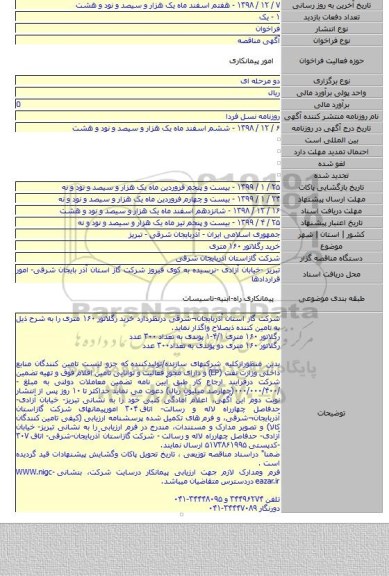 تاریخ آخرین به روز رسانی ۷ / ۱۲ / ۱۳۹۸ - هفتم اسفند ماه یک هزار و سیصد و نود و هشت
تعداد دفعات بازدید ۱ - یک
نوع انتشار فراخوان
نوع فراخوان آگهی مناقصه
حوزه فعالیت فراخوان امور پیمانکاری
نوع برگزاری دو مرحله ای
واحد پولی برآورد مالی ریال
برآورد مالی 0
نام روزنامه منتشر کننده آگهی روزنامه نسل فردا
تاریخ درج آگهی در روزنامه ۶ / ۱۲ / ۱۳۹۸ - ششم اسفند ماه یک هزار و سیصد و نود و هشت
بین المللی است
احتمال تمدید مهلت دارد
لغو شده
تجدید شده
تاریخ بازگشایی پاکات ۲۵ / ۱ / ۱۳۹۹ - بیست و پنجم فروردین ماه یک هزار و سیصد و نود و نه
مهلت ارسال پیشنهاد ۲۴ / ۱ / ۱۳۹۹ - بیست و چهارم فروردین ماه یک هزار و سیصد و نود و نه
مهلت دریافت اسناد ۱۶ / ۱۲ / ۱۳۹۸ - شانزدهم اسفند ماه یک هزار و سیصد و نود و هشت
تاریخ اعتبار پیشنهاد ۲۵ / ۴ / ۱۳۹۹ - بیست و پنجم تیر ماه یک هزار و سیصد و نود و نه
کشور | استان | شهر جمهوری اسلامی ایران - آذربایجان شرقی - تبریز
موضوع خرید رگلاتور ۱۶۰ متری
دستگاه مناقصه گزار شرکت گازاستان آذربایجان شرقی
محل دریافت اسناد تبریز -خیابان آزادی -نرسیده به کوی فیروز شرکت گاز استان آذر بایجان شرقی- امور
قراردادها
طبقه بندی موضوعی پیمانکاری راه-ابنیه-تاسیسات
توضیحات
شرکت گاز استان آذربایجان-شرقی درنظردارد خرید رگلاتور ۱۶۰ متری را به شرح ذیل
به تامین کننده ذیصلاح واگذار نماید.
رگلاتور ۱۶۰ متری ۱-۱/۴ پوندی به تعداد ۳۰۰ عدد
رگلاتور ۱۶۰ متری دو پوندی به تعداد ۳۰۰ عدد
بدین منظورازکلیه شرکتهای سازنده/تولیدکننده که جزو لیست تامین کنندگان منابع
داخلی وزارت نفت (EP) و دارای مجوز فعالیت و توانایی تامین اقلام فوق و تهیه تضمین
شرکت درفرآیند ارجاع کار طبق آیین نامه تضمین معاملات دولتی به مبلغ -
نوبت دوم این آگهی، اعلام آمادگی کتبی خود را به نشانی تبریز- خیابان آزادی-
حدفاصل چهارراه لاله و رسالت- اتاق ۳۰۴ امورپیمانهای شرکت گازاستان
آذربایجان-شرقی، و فرم های تکمیل شده پرسشنامه ارزیابی (کیفی تامین کنندگان
کالا) و تصویر مدارک و مستندات، مندرج در فرم ارزیابی را به نشانی تبریز- خیابان
آزادی- حدفاصل چهارراه لاله و رسالت - شرکت گازاستان آذربایجان-شرقی- اتاق ۲۰۷
-کدپستی ۵۱۷۳۸۶۱۹۹۵ ارسال نمایند.
ضمنا" دراسناد مناقصه توزیعی ، تاریخ تحویل پاکات وگشایش پیشنهادات قید گردیده
است .
فرم ومدارک لازم جهت ارزیابی پیمانکار درسایت شرکت، بنشانی -WWW.nigc
eazar.ir دردسترس متقاضیان میباشد.
تلفن ۳۴۴۹۶۲۷۴ و ۳۴۴۴۸۰۹۵-۰۴۱
دورنگار ۳۴۴۴۷۰۸۹-۰۴۱